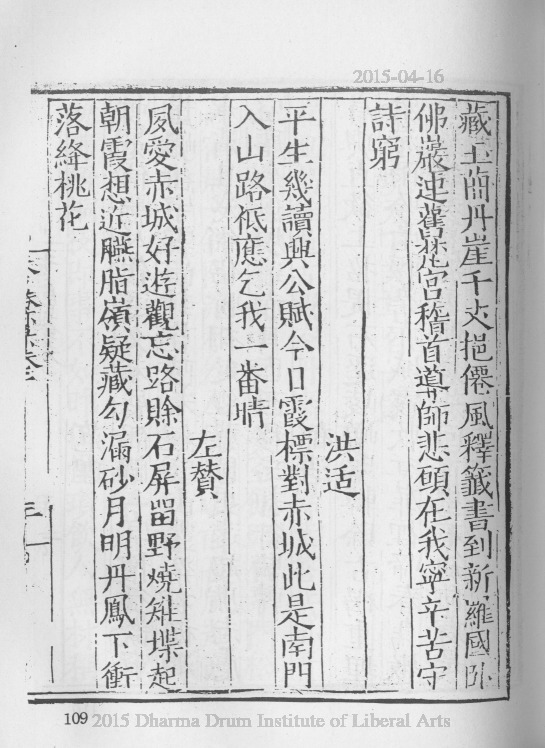 2015-04-16
藏玉蕳丹崖千丈挹僊風釋籤書到新羅國卧
佛巖連舊梵宮稽首導師悲願在我寧辛苦守
詩窮
洪适
平生幾讀興公賦今日霞標對赤城此是南門
入山路低應乞我一番晴
左贊
夙愛赤城好遊觀忘路賒石屏留野燒雉堞起
朝霞想近臙脂嶺疑藏勾漏砂月明丹鳳下銜
落絳桃花
109 2015 Dharma Drum Institute of Liberal Arts